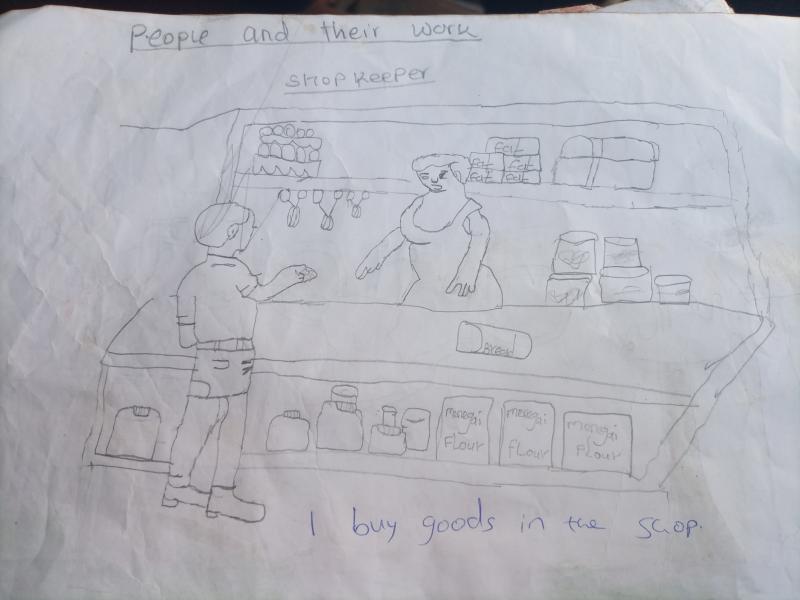 People and their work
SHOPKEEPER
fat
fat fat
fat fat
Bread
menegai
Flour
menegai
flour
menegai
Flour
I buy goods in the shop.